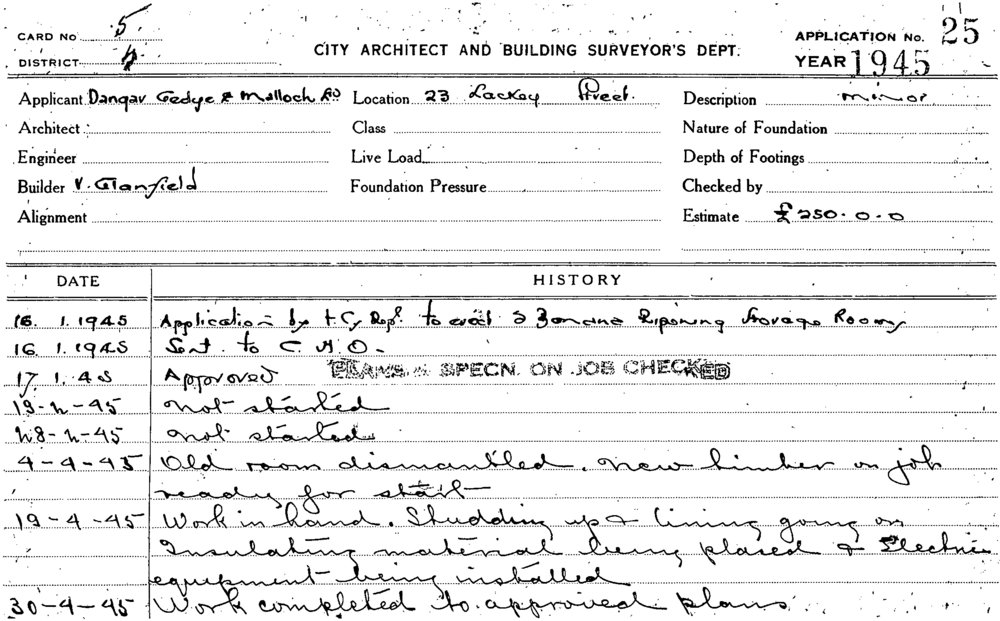 CARD No 5 APPLICATION No. 25
DISTRICT CITY ARCHITECT AND BUILDING SURVEYOR'S DEPT. YEAR 1945
Applicant Dangar Gedye & Malloch Location 23 Lackey Street. Description minor
Architect Class Nature of Foundation
Engineer Live Load Depth of Footings
Builder V. Glanfield Foundation Pressure Checked by
Alignment Estimate £250.0.0
DATE HISTORY
16. 1. 1945 Application by to erect 2 Banana Ripening Storage Rooms
16. 1. 1945 Sent to C.H.O.
17. 1. 45 Approved PLANS & SPECN. ON JOB CHECKED
19-2-45 not started
28-2-45 not started
4-4-45 Old room dismantled. new timber on job
ready for start
19-4-45 Work in hand. Studding up & lining going on
Insulating material being placed & Electric
equipment being installed
30-4-45 Work completed to approved plans